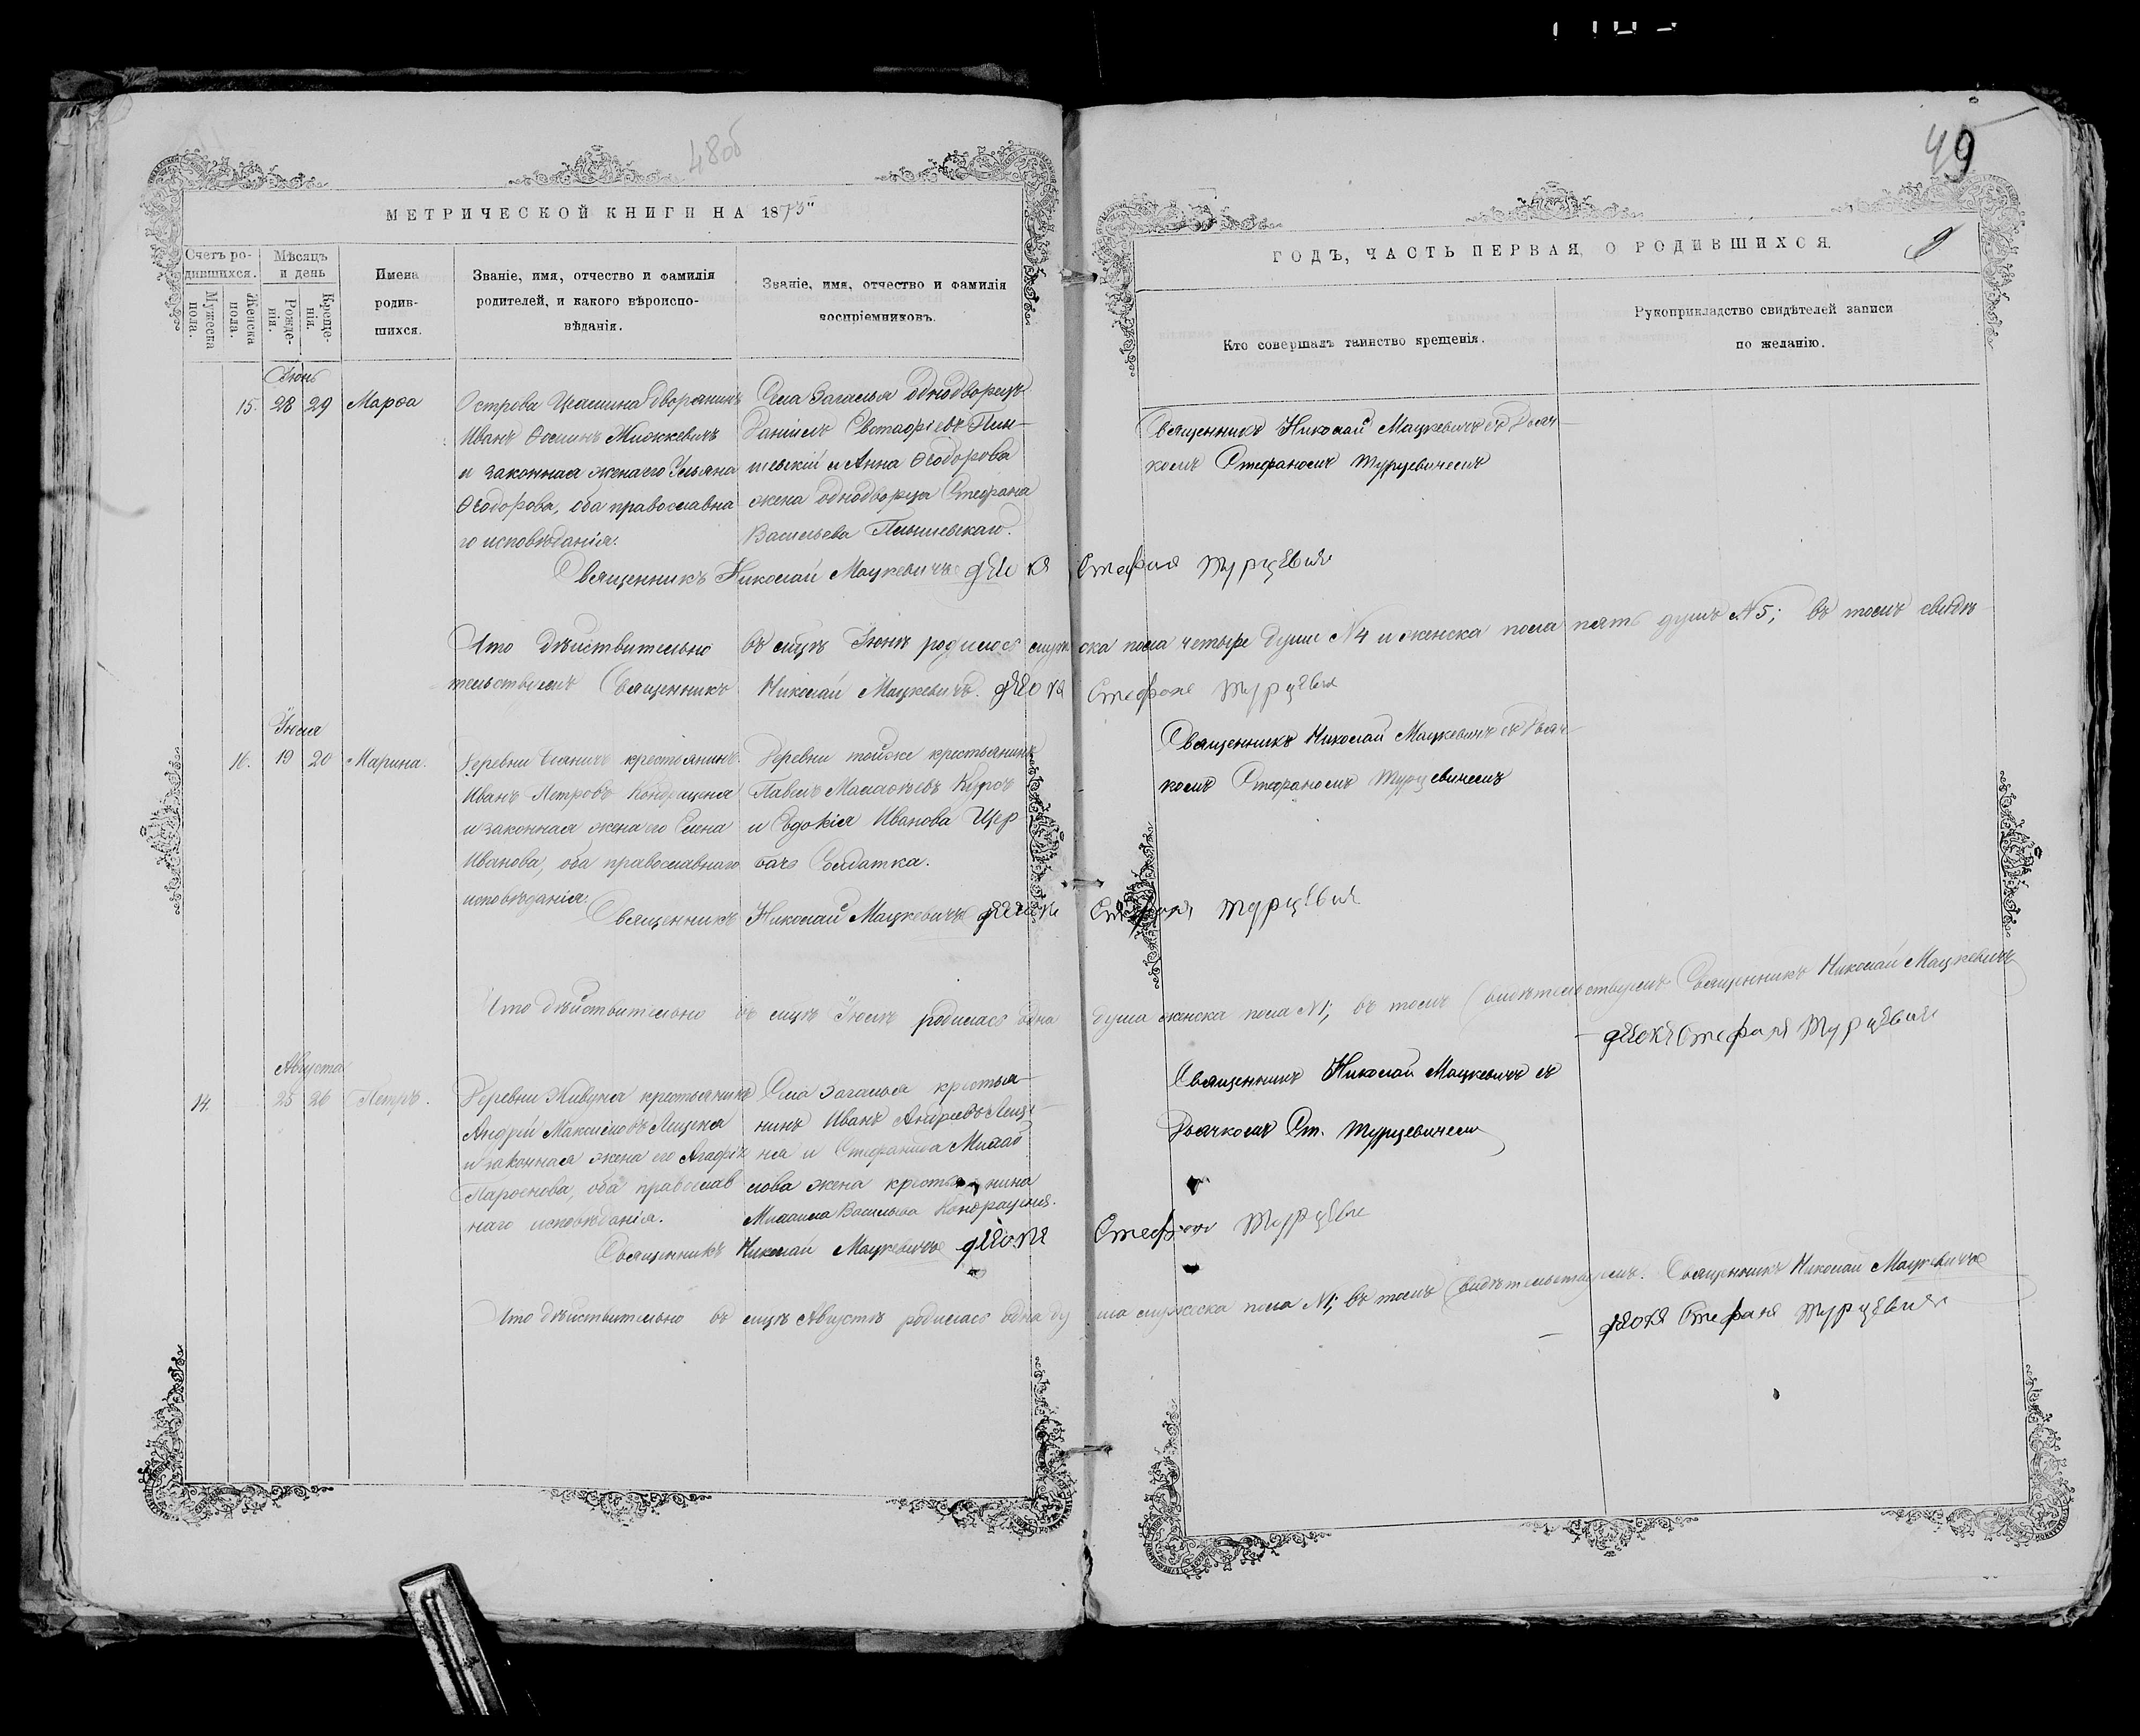 48об
49
МЕТРИЧЕСКОЙ КНИГИ НА 1873"
ГОДЪ, ЧАСТЬ ПЕРВАЯ, О РОДИВШИХСЯ.
9
Счетъ родившихся.
Мужеска пола.
Женска пола.
Мѣсяцъ и день
Рожденія.
Крещенія.
Имена родившихся.
Званіе, имя, отчество и фамилія
родителей, и какого вѣроиспо-
вѣданія.
Званіе, имя, отчество и фамилія
воспріемниковъ.
Кто совершалъ таинство крещенія.
Рукоприкладство свидѣтелей записи
по желанію.
Іюнь
15. 28 29 Марѳа
Острова дворянинъ
Иванъ Ѳоминъ
и законная жена его Ульяна
Ѳеодорова, оба православна
го исповѣданія.
Села Загалья однодворецъ
Даніилъ Евстафіевъ
и Анна Ѳеодорова
жена однодворца Стефана
Васильева
Священникъ Николай Мацкевичъ съ Дьяч-
комъ Стефаномъ Турцевичемъ
Священникъ Николай Мацкевичъ Стефанъ Турцевич
Что дѣйствительно въ мцѣ Іюнѣ родилось мужеска пола четыре души №4 и женска пола пять душъ №5; въ томъ свидѣ-
тельствуемъ Священникъ Николай Мацкевичъ. Стефанъ Турцевич
Іюля
16. 19 20 Марина.
Деревни крестьянинъ
Иванъ Петровъ Кондращеня
и законная жена его Елена
Иванова, оба православнаго
исповѣданія.
Деревни тойже крестьянинъ
Павелъ
и Евдокія Иванова Щер
бачъ Солдатка.
Священникъ Николай Мацкевичъ съ Дьяч-
комъ Стефаномъ Турцевичемъ
Священникъ Николай Мацкевичъ Стефанъ Турцевич
Что дѣйствительно въ мцѣ Іюлѣ родилась одна душа женска пола №1; въ томъ свидѣтельствуемъ Священникъ Николай Мацкевичъ
Стефанъ Турцевич
Августа
14. 25 26 Петръ.
Деревни Живуня крестьянинъ
Андрей Максимовъ Лещеня
и законная жена его Агафія
Парѳенова, оба православ
наго исповѣданія.
Села Загалья крестья-
нинъ Иванъ Андреевъ Леще-
ня и Стефанида
жена крестьянина
Михаила Васильева Кондращеня.
Священникъ Николай Мацкевичъ съ
Дьячкомъ Ст. Турцевичемъ
Священникъ Николай Мацкевичъ Стефанъ Турцевич
Что дѣйствительно въ мцѣ Августѣ родилась одна душа мужеска пола №1; въ томъ свидѣтельствуемъ. Священникъ Николай Мацкевичъ
Стефанъ Турцевич